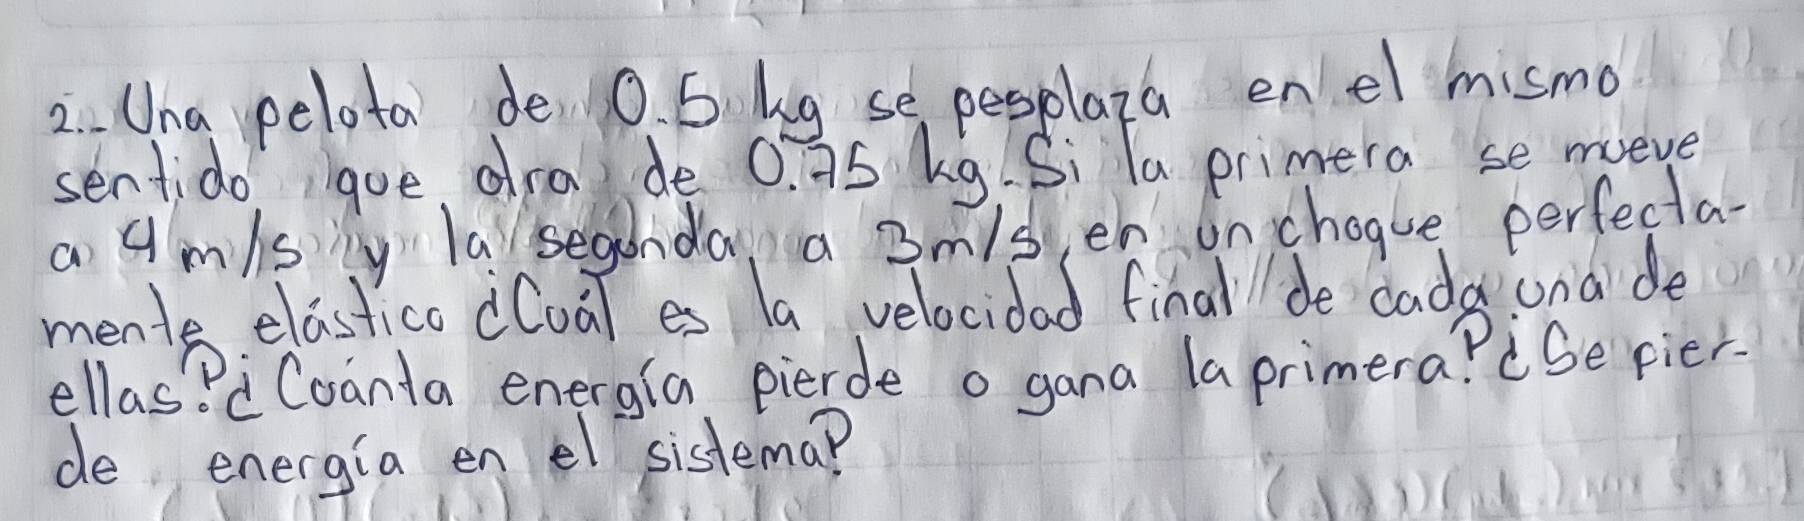 2.. Una pelota de 0.5 kg se pesplaza en el mismo
sentido que otra de 0.75 kg. Si la primera se mueve
a 4 m/s y la segunda, a 3 m/s, en un choque perfecta-
mente elástico ¿Cuál es la velocidad final de cada una de
ellas? ¿Cuánta energía pierde o gana la primera? ¿Se pier-
de energía en el sistema?